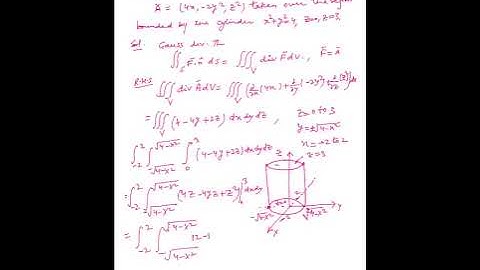 Ā = (4x, -2y², z²) taken over the region
bounded by the cylinder x²+y²=4, z=0, z=3.
Sol: Gauss div. Th
∬_S F̄.n̄ ds = ∭_V div F̄ dV, F̄ = ā
R.H.S ∭_V div Ā dV = ∭_V (∂/∂x(4x) + ∂/∂y(-2y²) + ∂/∂z(z²)) dv
= ∭_V (4-4y+2z) dx dy dz, z=0 to 3
y=±√4-x²
x=-2 to 2
= ∫_-2^2 ∫_-√4-x²^√4-x² ∫_0^3 (4-4y+2z) dx dy dz
z=3
= ∫_-2^2 ∫_-√4-x²^√4-x² (4z-4yz+z²)|_0^3 dx dy
-√4-x² √4-x² y
x
= ∫_-2^2 ∫_-√4-x²^√4-x² 12-1